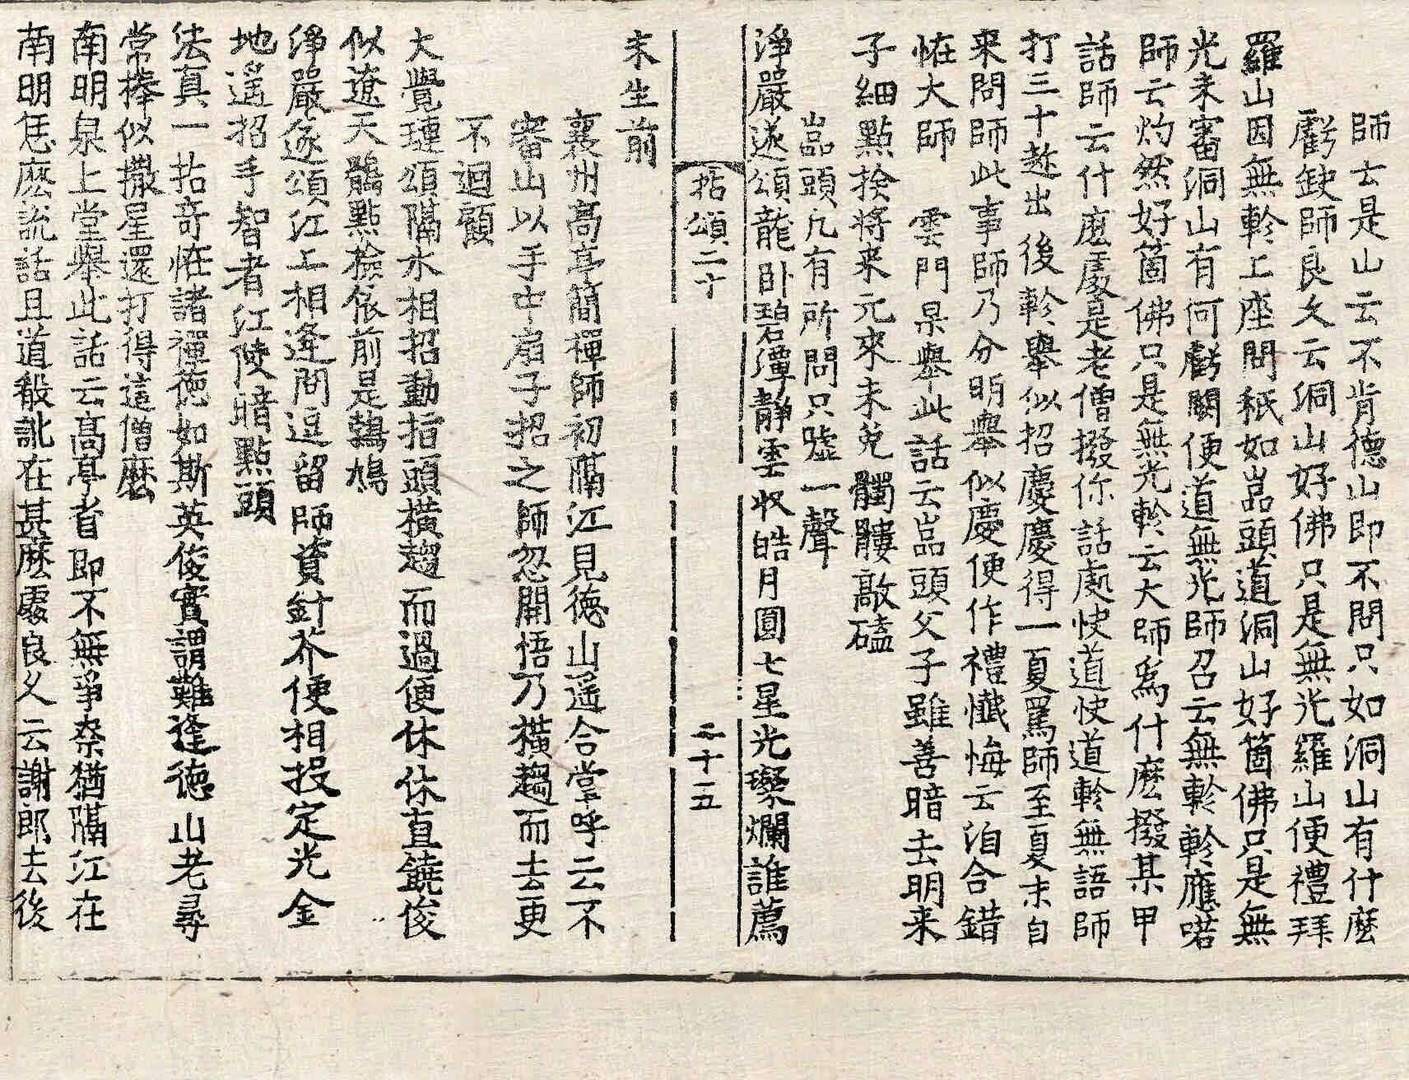 師云是山云不肯德山即不問只如洞山有什麽
虧缺師良久云洞山好佛只是無光羅山便禮拜
羅山因無軫上座問秖如嵓頭道洞山好箇佛只是無
光未審洞山有何虧闕便道無光師召云無軫軫應喏
師云灼然好箇佛只是無光軫云大師爲什麽撥某甲
話師云什麽處是老僧撥你話處快道快道軫無語師
打三十趂出後軫舉似招慶慶得一夏罵師至夏末自
来問師此事師乃分明舉似慶便作禮懺悔云洎合錯
恠大師　雲門杲舉此話云嵓頭父子雖善暗去明来
子細點撿將来元來未免髑髏敲磕
嵓頭凡有所問只噓一聲
淨嚴遂頌龍卧碧潭靜雲収皓月圓七星光璨爛誰薦
拈頌二十　二十五
未生前
襄州高亭簡禪師初隔江見德山遥合掌呼云不
審山以手中扇子招之師忽開悟乃橫趨而去更
不迴顧
大覺璉頌隔水相招動指頭橫趨而過便休休直饒俊
似遼天鶻點檢依前是鵓鳩
淨嚴遂頌江上相逢問逗留師資針芥便相投定光金
地遥招手智者江陵暗點頭
法真一拈奇恠諸禪德如斯英俊實謂難逢德山老尋
常棒似撒星還打得這僧麽
南明泉上堂舉此話云高亭者即不無爭奈猶隔江在
南明恁麽說話且道殽訛在甚麽處良久云謝郎去後